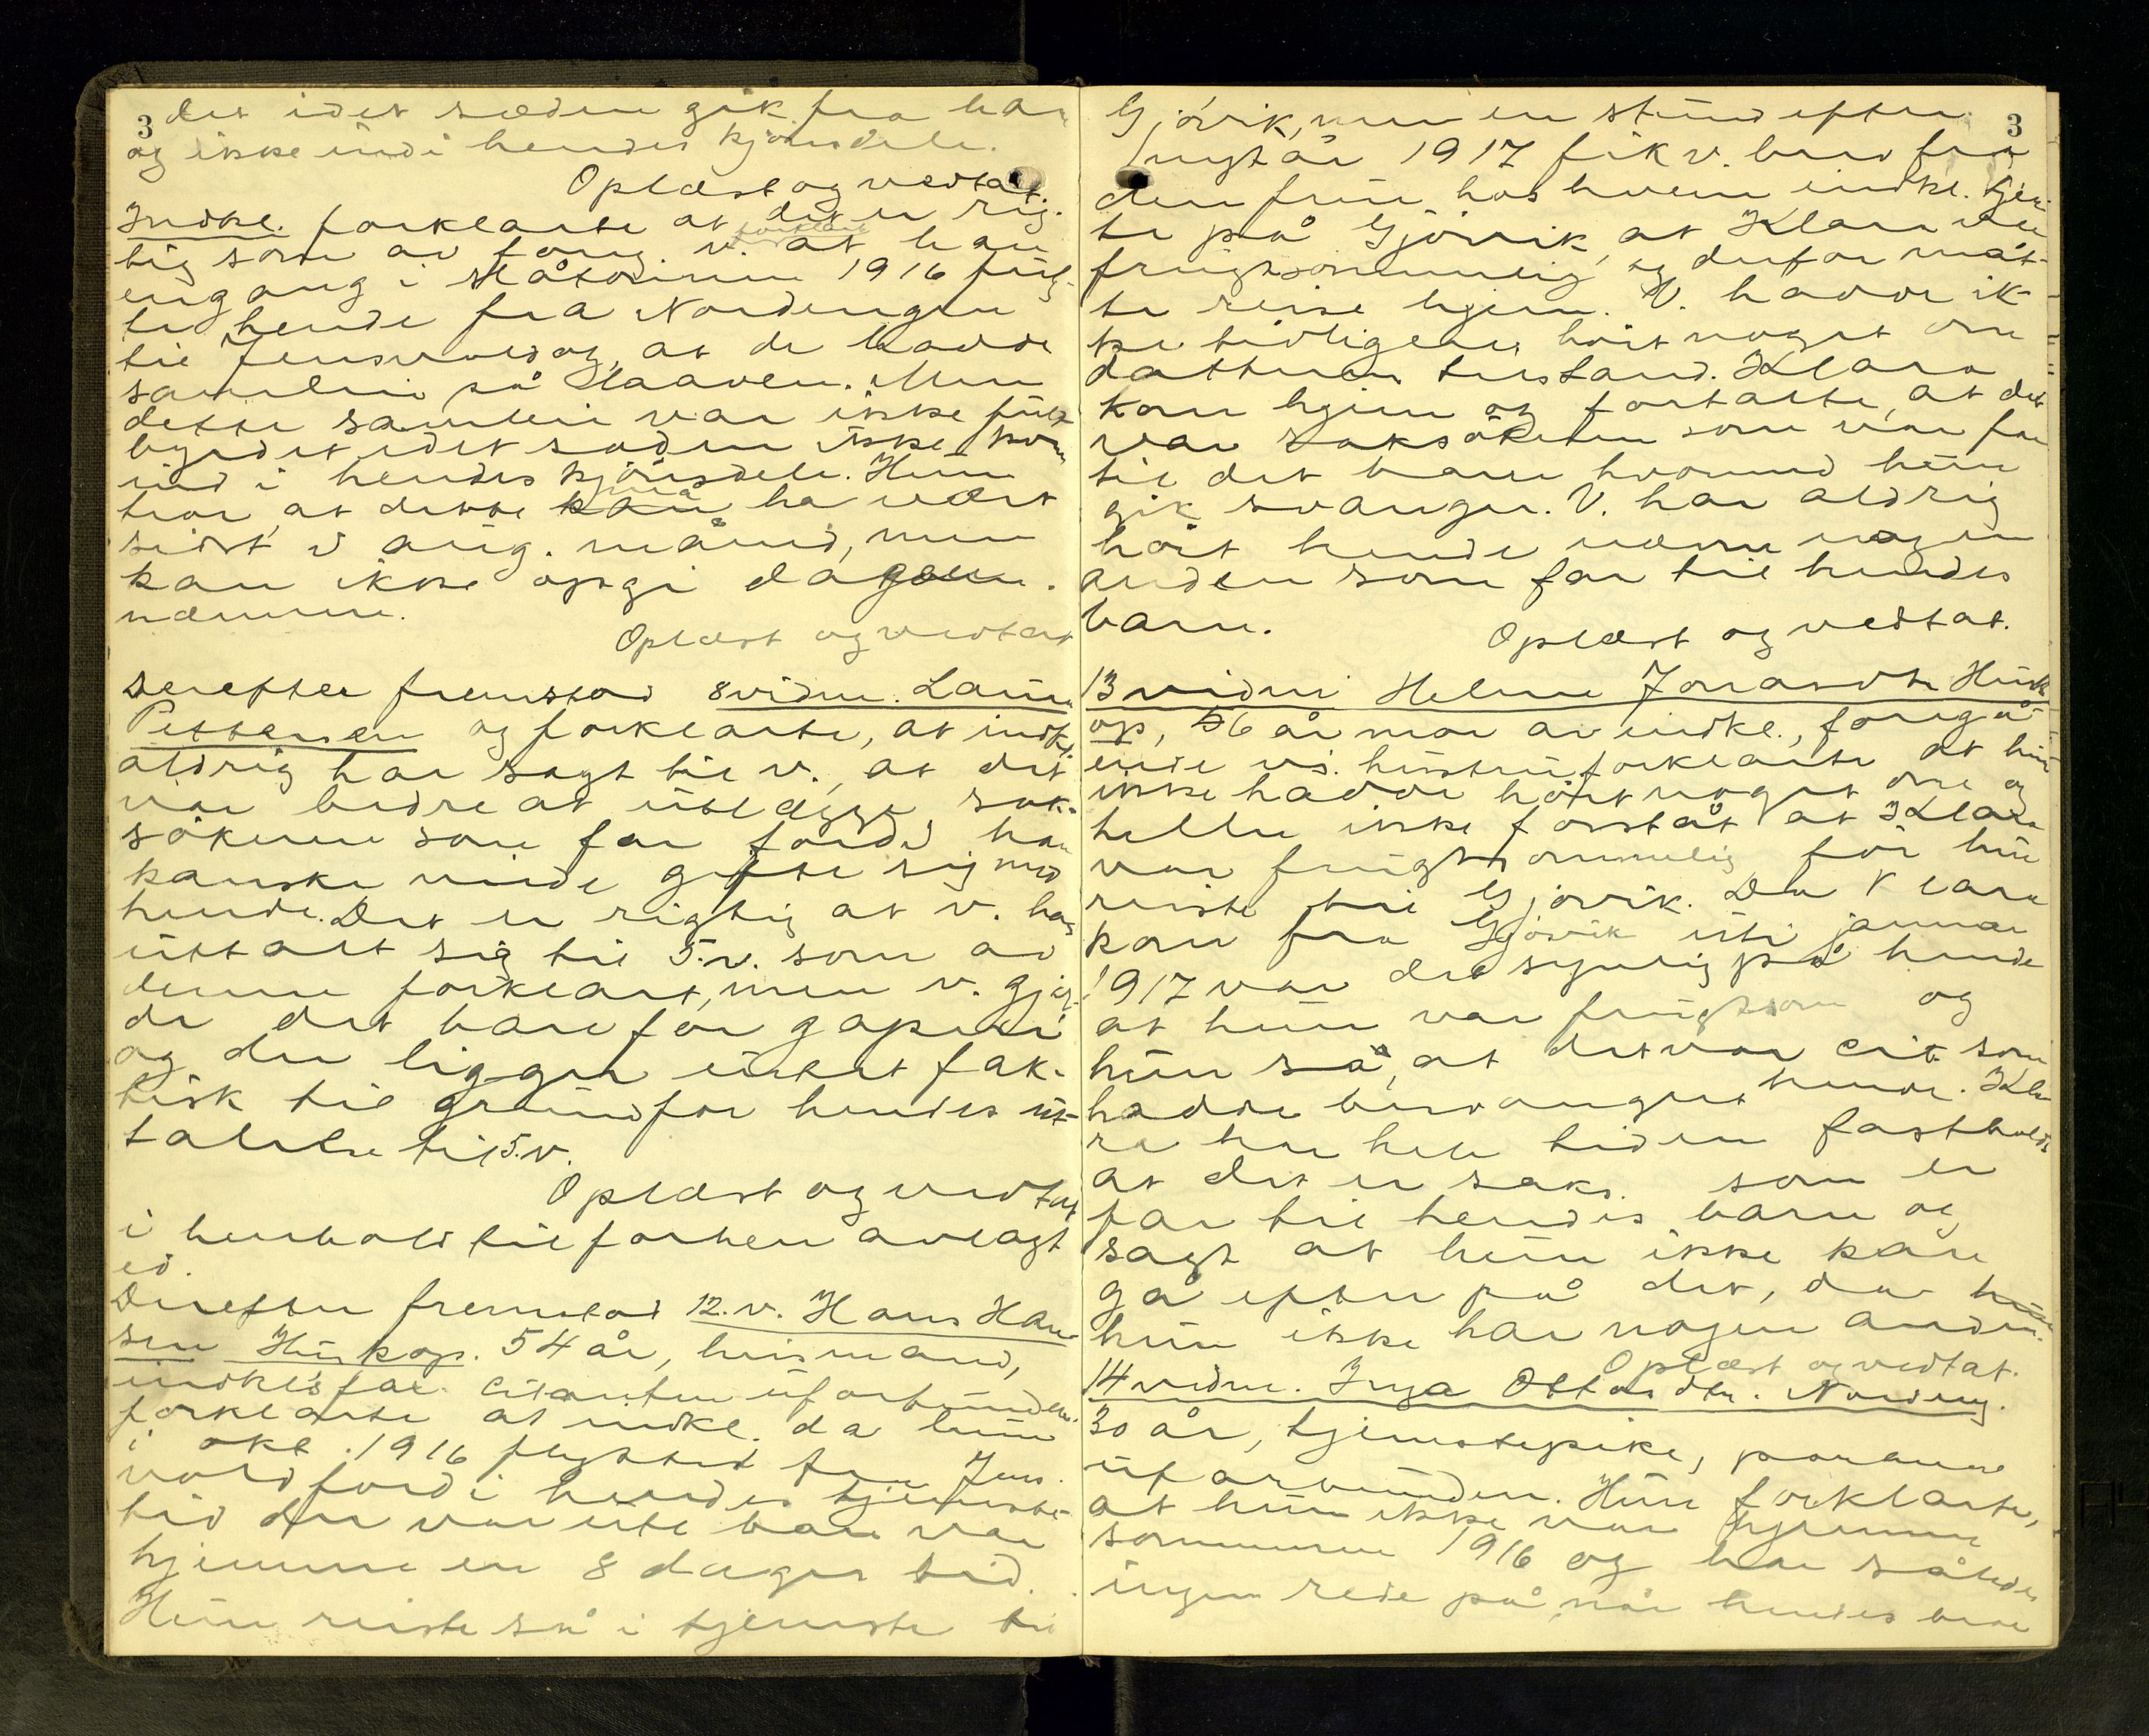 3
det idet sæden gik fra ham
og ikke ind i hendes kjønsdele.
Oplæst og vedtat.
Indkl. forklarte at det er rig-
tig som av forrig v. forklart at han
engang i slåtonnen 1916 fulg-
te hende fra Nordengen
til Jensvold og at de hadde
samleie på Haaven. Men
dette samleie var ikke fuld-
byrdet idet sæden ikke kom
ind i hendes kjønsdele. Hun
tror at dette kan må ha vært
sidst i aug. måned, men
kan ikke opgi dagen
nærmere.
Oplæst og vedtat
Derefter fremstod 8 vidne. Laura
Pettersen og forklarte, at indkl.
aldrig har sagt til v., at det
var bedre at utlægge sak-
søkeren som far fordi han
kanske vilde gifte sig med
hende. Det er rigtig at v. har
uttalt sig til 5. v. som av
denne forklart, men v. gjor-
de det bare for gaperi
og der ligger intet fak-
tisk til grund for hendes ut-
talelse til 5. v.
Oplæst og vedtat
i henhold til forhen avlagt
ed.
Derefter fremstod 12. v. Hans Han-
sen Huskop. 54 år, husmand,
indkl's far. Citanten uforbunden
forklarte at indkl. da hun
i okt. 1916 flyttet fra Jens-
vold fordi hendes tjeneste-
tid der var ute bare var
hjemme en 8 dagers tid.
Hun reiste så i tjeneste til
3
Gjövik, men en stund efter
nyt år 1917 fik v. bud fra
den frue hos hvem indkl. tjen-
te på Gjövik, at Klara var
frugtsommelig og derfor måt-
te reise hjem. V. hadde ik-
ke tidligere hört noget om
datterens tilstand. Klara
kom hjem og fortalte, at det
var saksökeren som var far
til det barn hvormed hun
gik svanger. V. har aldrig
hört hende nævne nogen
anden som far til hendes
barn.
Oplæst og vedtat.
13 vidne Helene Jonasdtr Husk-
op, 56 år mor av indkl., foregå-
ende v's. hustru forklarte at hun
ikke hadde hört noget om og
heller ikke forståt at Klara
var frugtsommelig för hun
reiste til Gjövik. Da Klara
kom fra Gjövik uti januar
1917 var det synlig på hende
at hun var frugtsom og
hun sa, at det var cit. som
hadde besvangret hende. Kla-
ra har hele tiden fastholdt
at det er saks. som er
far til hendes barn og
sagt at hun ikke kan
gå efter på det, da hun
hun ikke har nogen anden.
Oplæst og vedtat.
14 vidne. Inga Ottosdtr. Nordeng.
30 år, tjenestepike, parterne
uforbunden. Hun forklarte,
at hun ikke var hjemme
sommeren 1916 og har således
ingen rede på når hendes bror